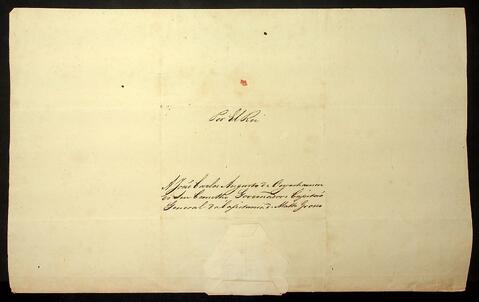 Por El Rei
A João Carlos Augusto de Oeynhausen
do Seu Conselho, Governador e Capitaõ
General da Capitania de Matto Grosso